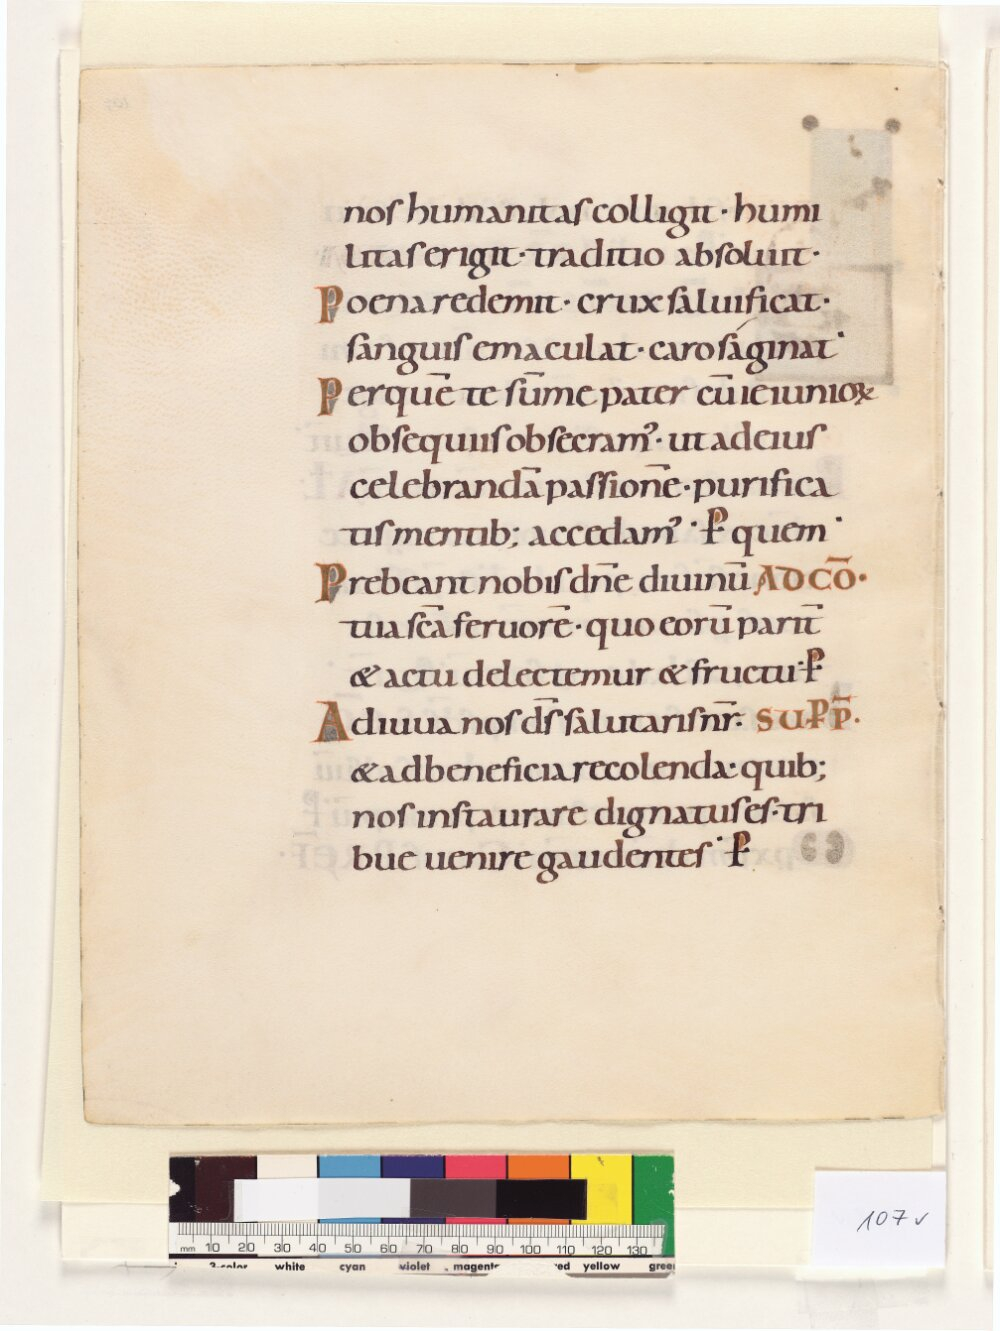 noſ humanitaſ colligit · humi
litaſ erigit · traditio absoluit ·
Poena redemit · crux ſaluificat ·
ſanguiſ emaculat · caro ſaginat ·
Per quē te ſūme pater cū ieiunioꝝ
obſequiiſ obſecram᾽ · ut ad eiuſ
celebrandā paſſionē · purifica
tiſ mentib; accedam᾽ · ꝑ quem ·
Prebeant nobiſ dn̄e diuinū AD CŌ ·
tua ſcā feruorē · quo eorū parit̄
& actu delectemur & fructu · ꝑ
Adiuua noſ dſ̄ ſalutariſ nr̄ · SUPP̄ ·
& ad beneficia recolenda · quib;
noſ inſtaurare dignatuſ eſ · tri
bue uenire gaudenteſ · ꝑ
mm 10 20 30 40 50 60 70 80 90 100 110 120 130
3-color white cyan violet magenta red yellow green
107 v